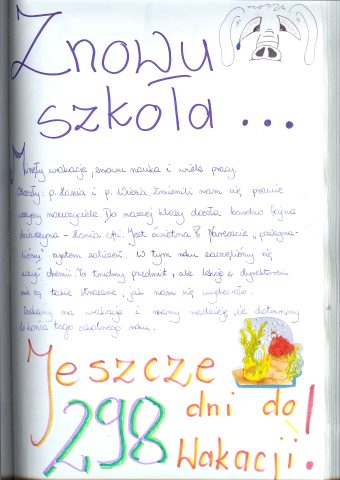 Znowu
szkoła ...
Minęły wakacje, znowu nauka i wiele pracy.
Odeszły: p. Hania i p. Wiesia. Zmienili nam się prawie
wszyscy nauczyciele. Do naszej klasy doszła bardzo fajna
dziewczyna - Hania Jest świetna! Nareszcie „pożegna-
liśmy" system zaliczeń. W tym roku zaczęliśmy się
uczyć chemii. To trudny przedmiot, ale lekcje z dyrektorem
nie są takie straszne, jak nam się wydawało.
Czekamy na wakacje i mamy nadzieję, że dotrwamy
do końca tego szkolnego roku.
Jeszcze
298 dni do
wakacji!